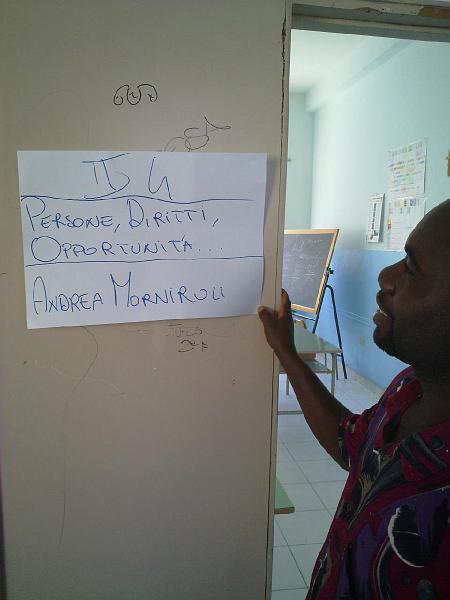 PERSONE, DIRITTI,
OPPORTUNITÀ...
ANDREA MORNIROLI